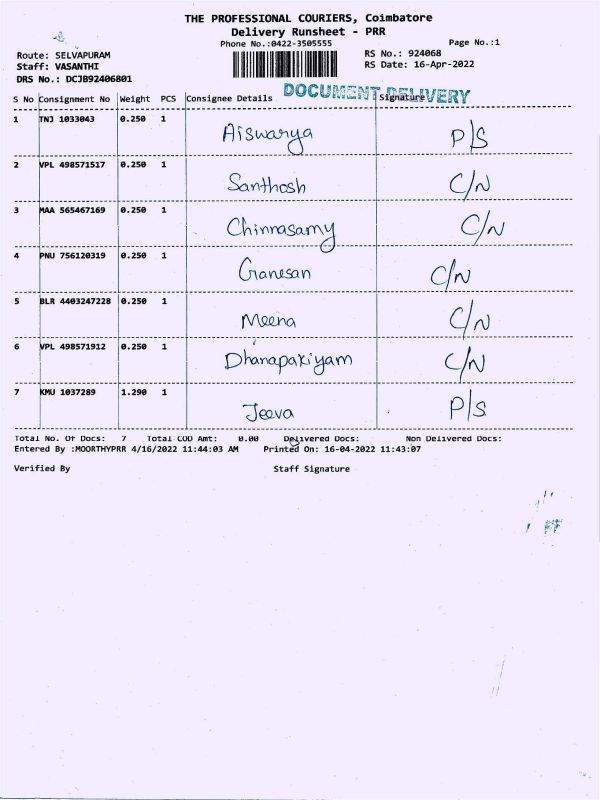 THE PROFESSIONAL COURIERS, Coimbatore
Delivery Runsheet - PRR
Phone No.:0422-3505555 Page No.:1
Route: SELVAPURAM RS No.: 924068
Staff: VASANTHI RS Date: 16-Apr-2022
DRS No.: DCJB92406801
DOCUMENT DELIVERY
S No Consignment No Weight PCS Consignee Details Signature
1 TNJ 1033043 0.250 1 Aiswarya P/S
2 VPL 498571517 0.250 1 Santhosh C/N
3 MAA 565467169 0.250 1 Chinnasamy C/N
4 PNU 756120319 0.250 1 Ganesan C/N
5 BLR 4403247228 0.250 1 Meena C/N
6 VPL 498571912 0.250 1 Dhanapakiyam C/N
7 KMU 1037289 1.290 1 Jeeva P/S
Total No. Of Docs: 7 Total COD Amt: 0.00 Delivered Docs: Non Delivered Docs:
Entered By :MOORTHYPRR 4/16/2022 11:44:03 AM Printed On: 16-04-2022 11:43:07
Verified By Staff Signature